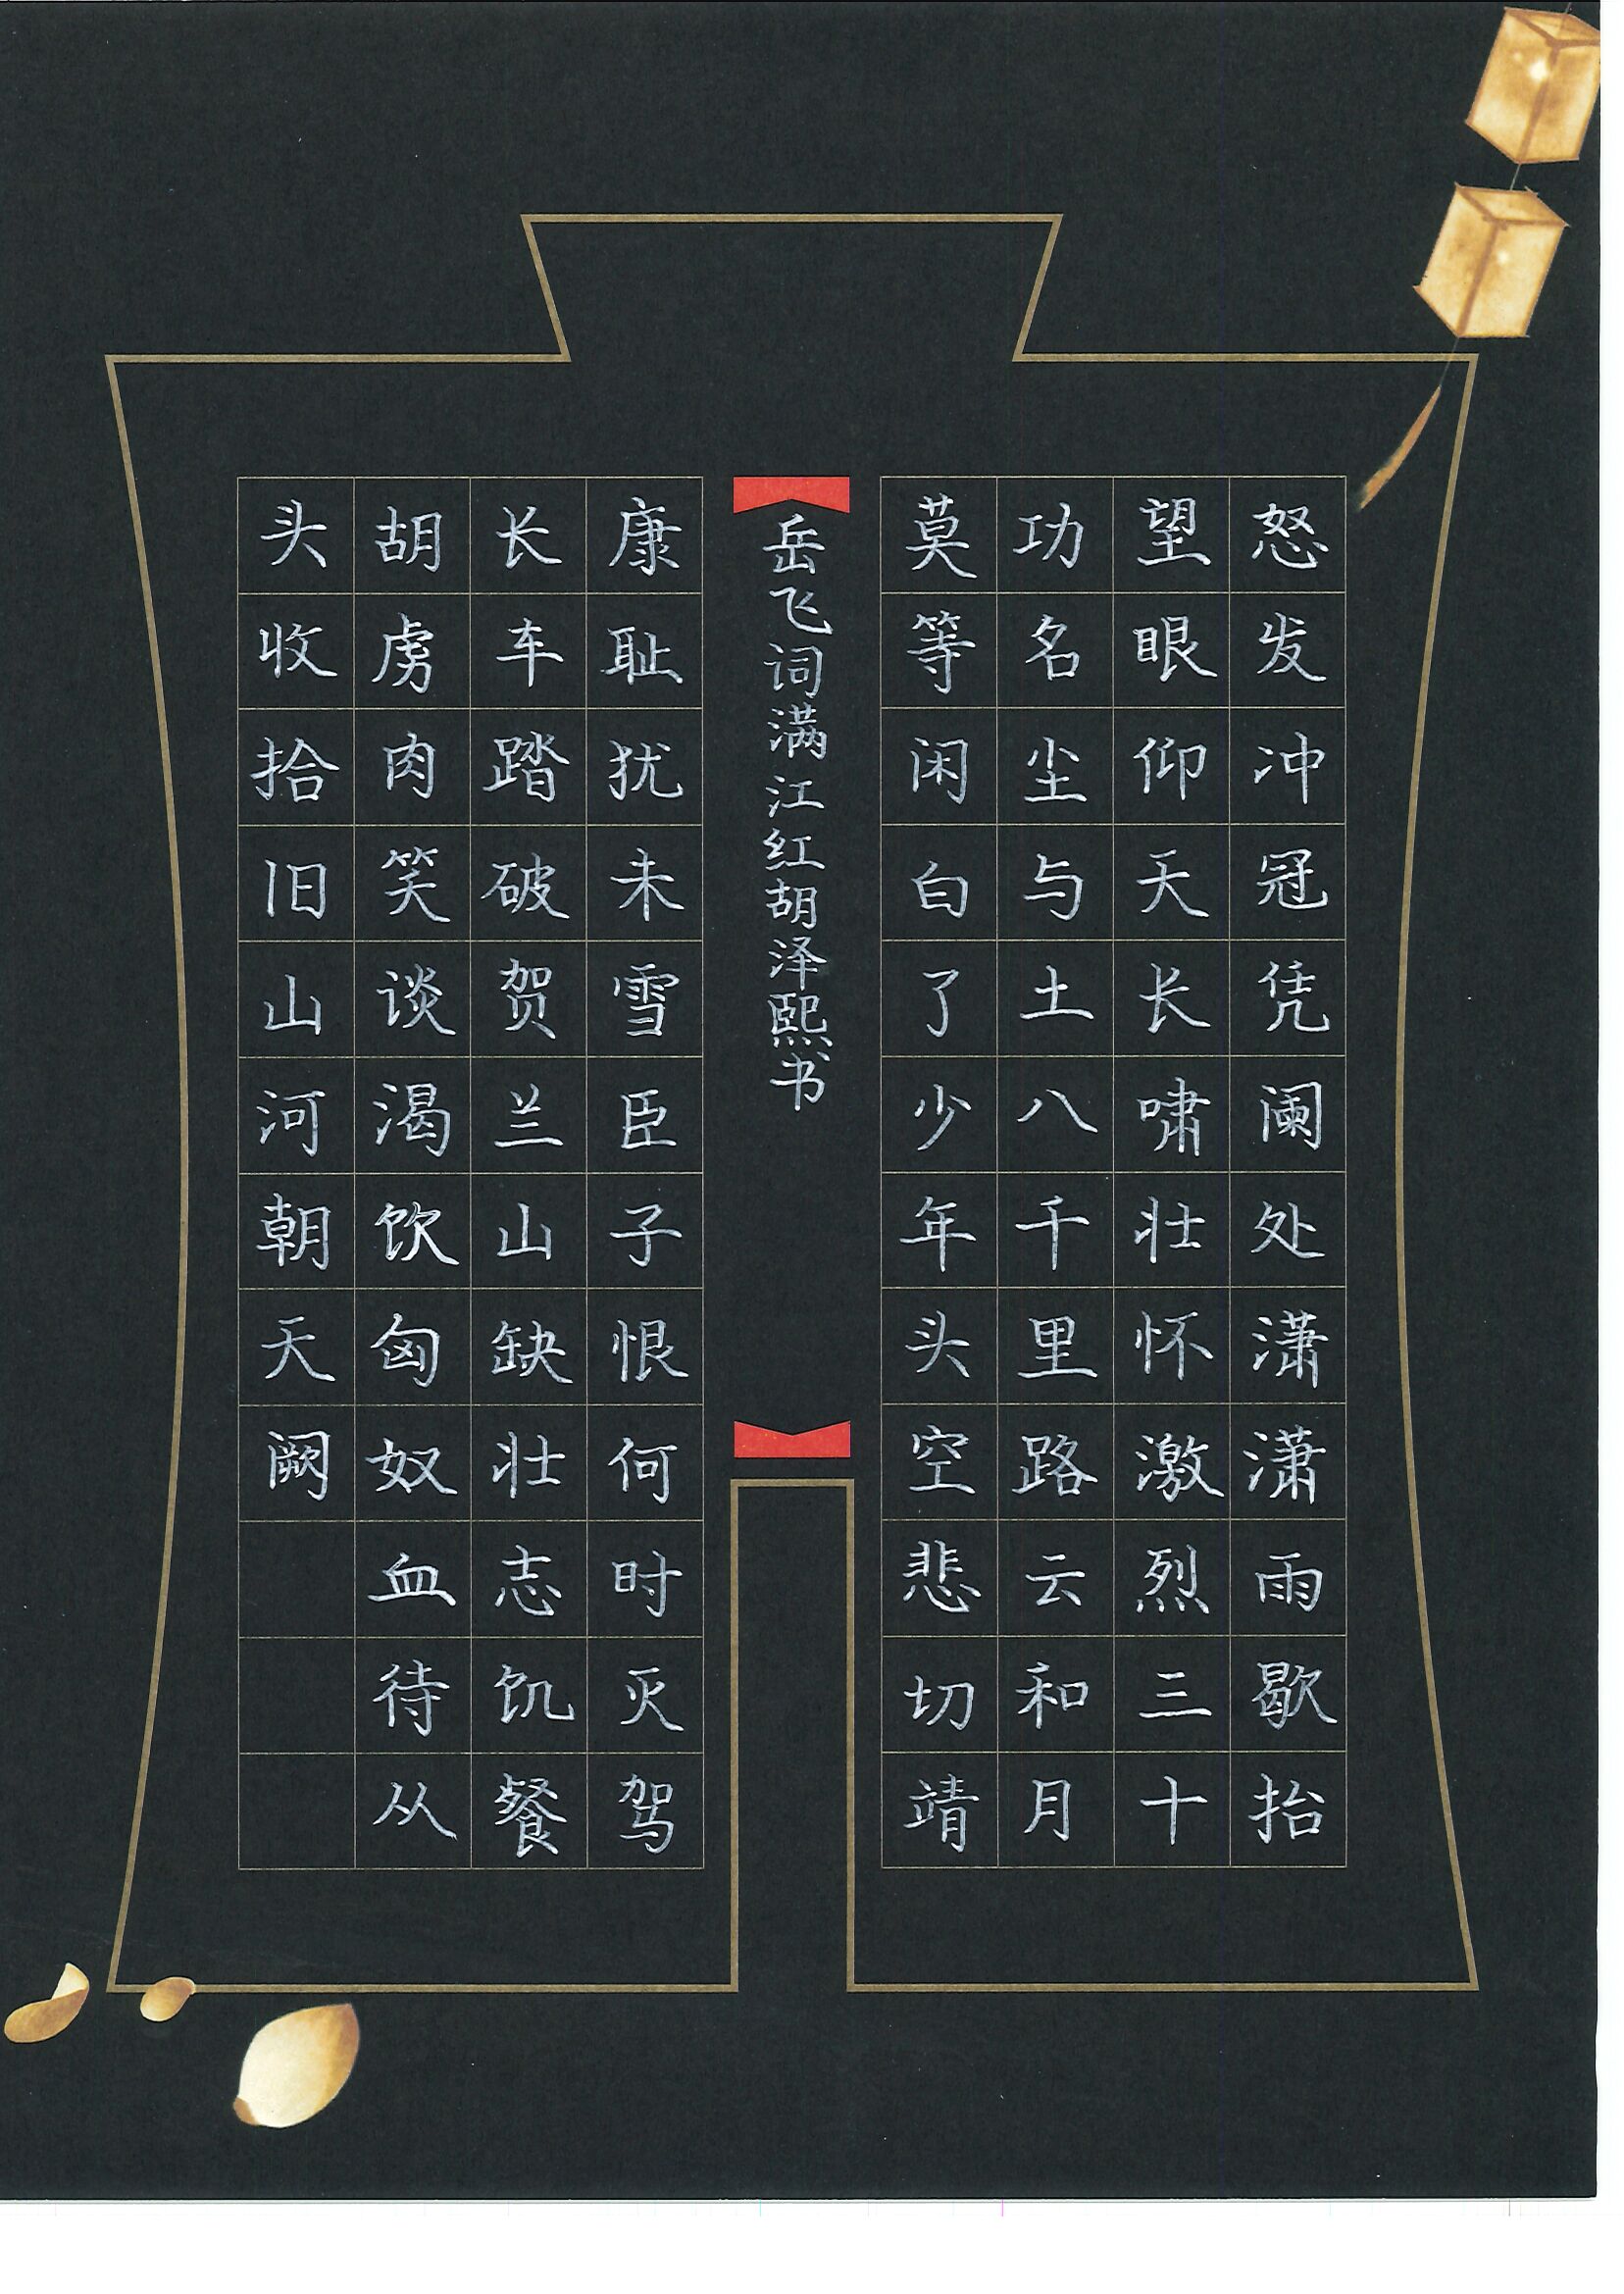 怒发冲冠凭阑处潇潇雨歇抬
望眼仰天长啸壮怀激烈三十
功名尘与土八千里路云和月
莫等闲白了少年头空悲切靖
康耻犹未雪臣子恨何时灭驾
长车踏破贺兰山缺壮志饥餐
胡虏肉笑谈渴饮匈奴血待从
头收拾旧山河朝天阙
岳飞词满江红胡泽熙书